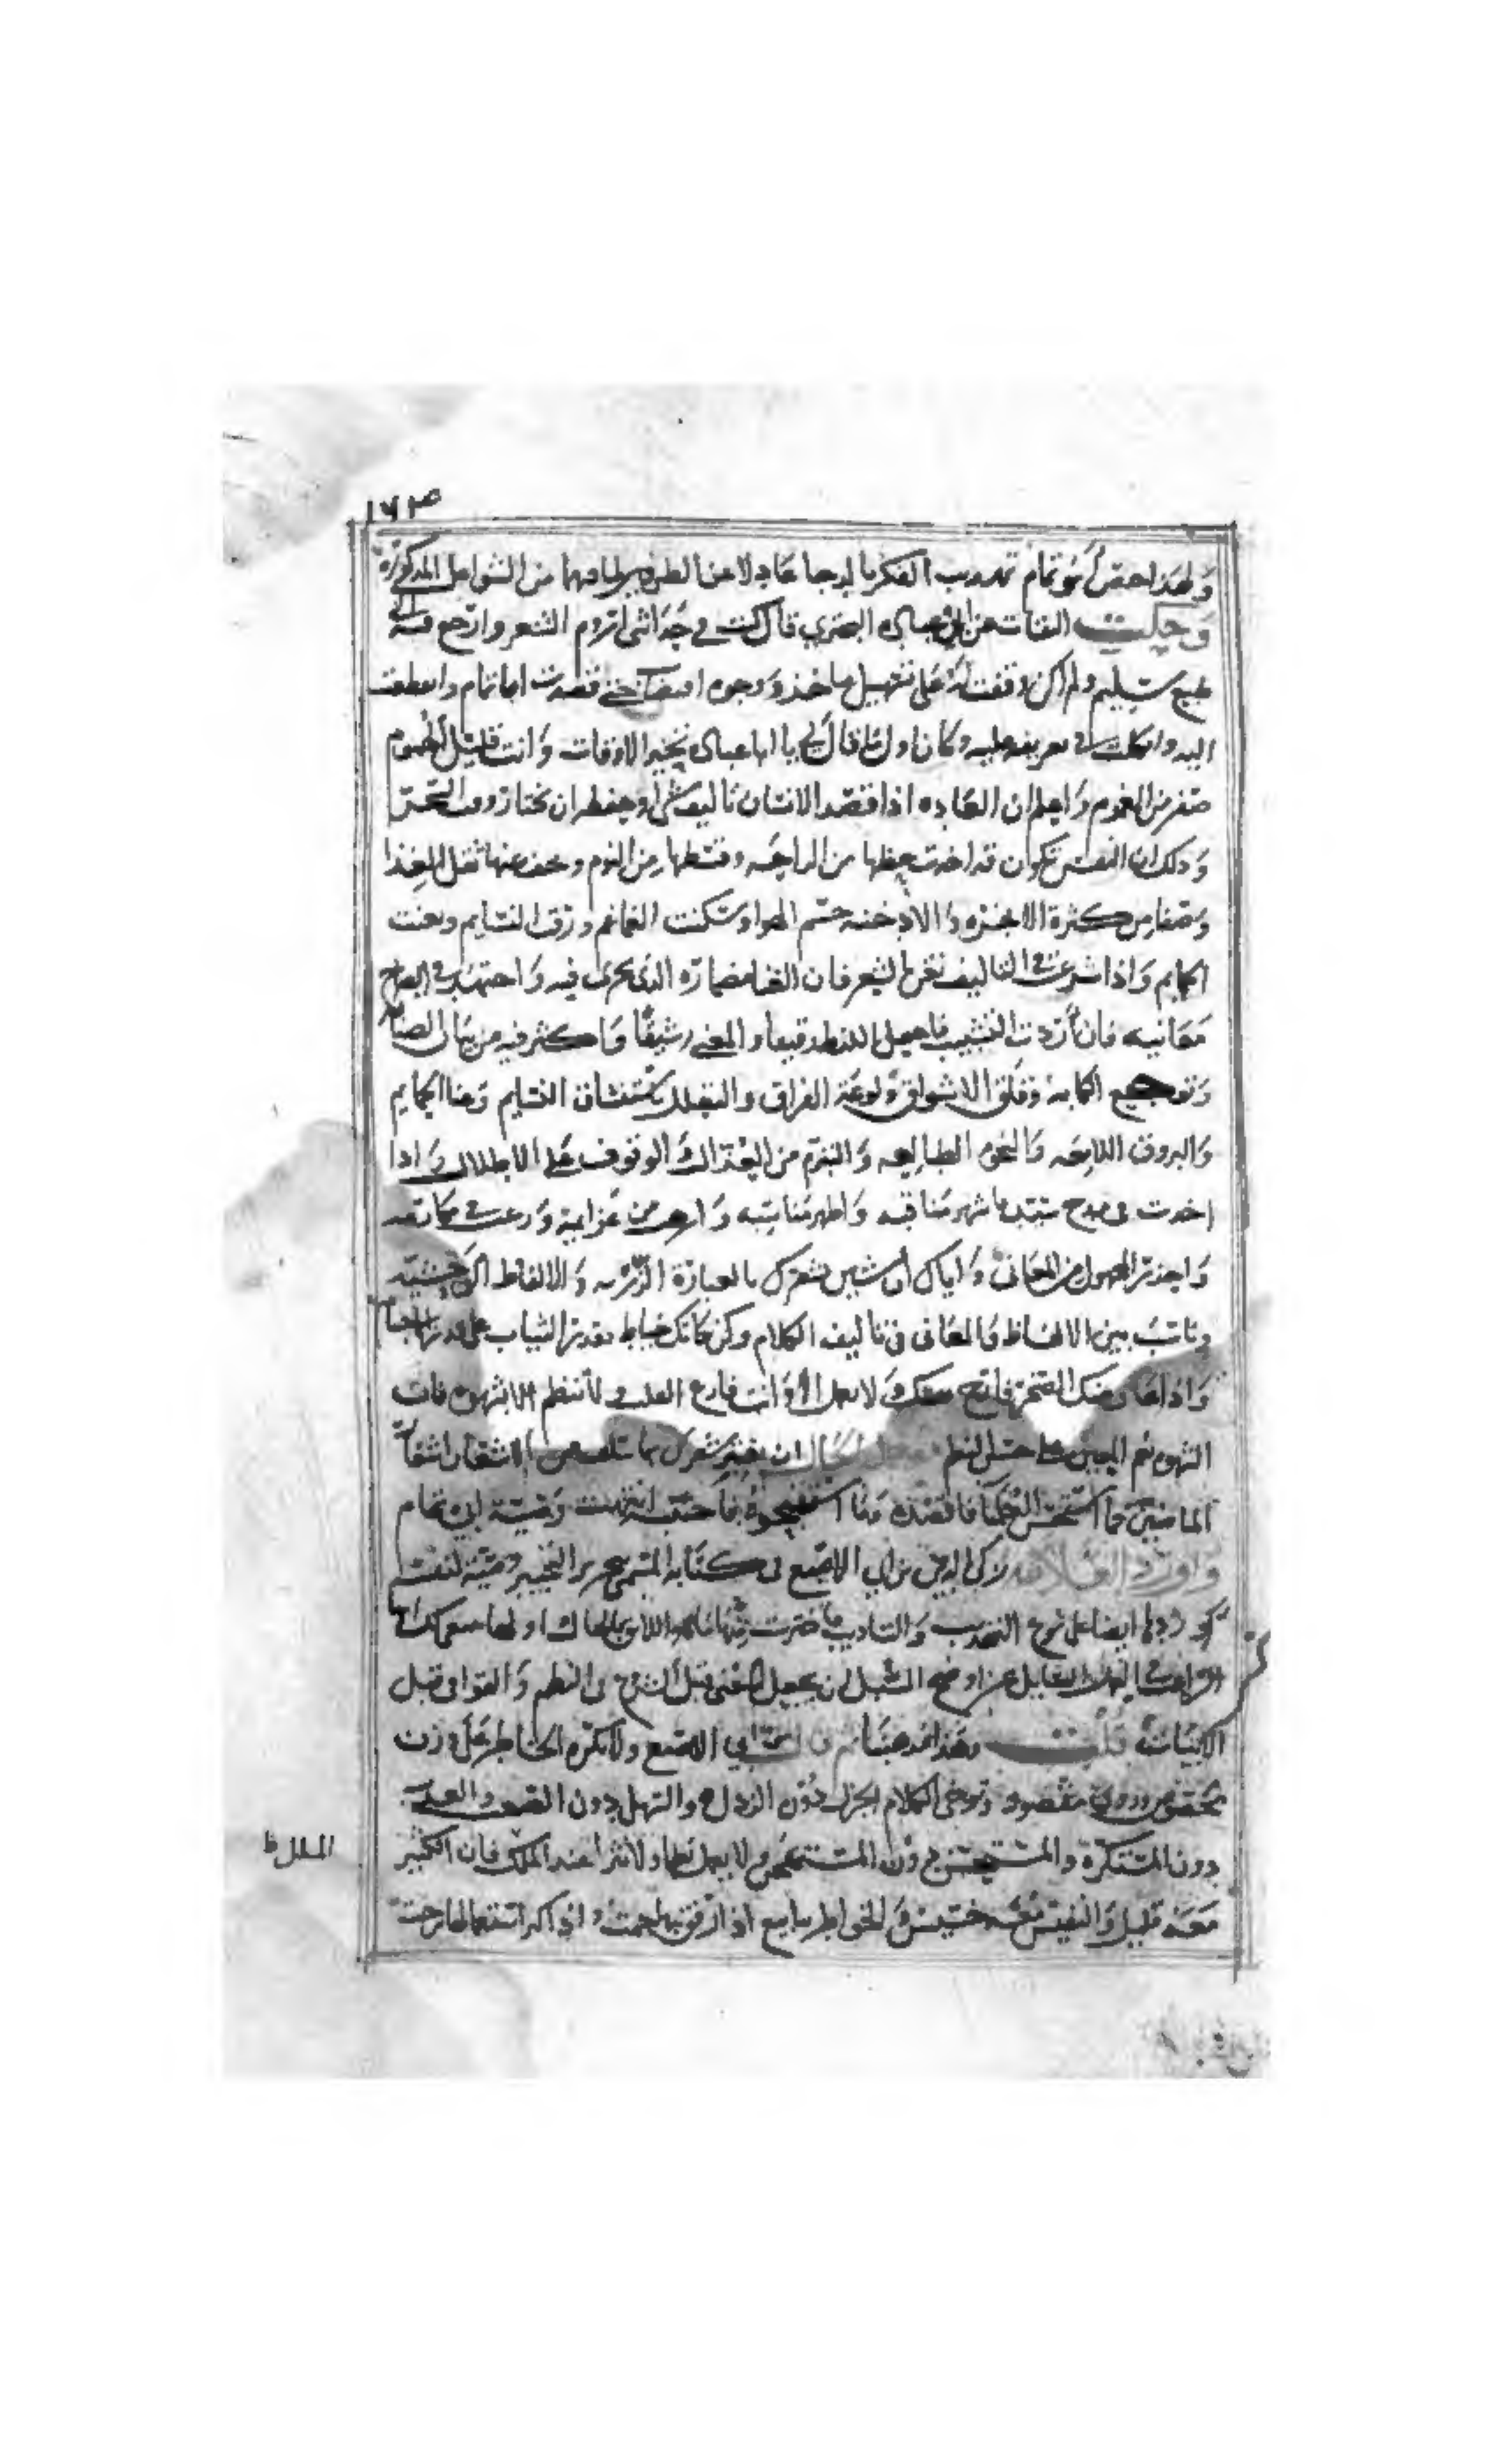 ١٦٣
ولهذا خص أبو تمام تهذيب الفكر بالدجا عادلا عن الطرفين لما فيهما من الشواغل المذكورة
وحكيت الثقات عن ابي عبادة البحتري قال كنت في حداثتي اروم الشعر وارجع فيه الى
طبع سليم ولم اكن وقفت له على تسهيل ماخذ ووجوه اقتضاب حتى قصدت ابا تمام وانقطعت
اليه واتكلت في تعريفه عليه وكان اول ما قال لي يا ابا عبادة تخير الاوقات وانت قليل الهموم
صفر من الغموم واعلم ان العادة اذا قصد الانسان تاليف شي او حفظه ان يختار وقت السحر
وذلك ان النفس تكون قد اخذت حظها من الراحة وقسطها من النوم وخف عنها ثقل الغذا
وصفا من كثرة الابخرة والادخنة جسم الهوا وسكنت الغماغم ورقت النسايم وتغنت
الحمايم واذا شرعت في التاليف تغن بالشعر فان الغنا مضماره الذي يجري فيه واجتهد في ايضاح
معانيه فان أردت التشبيب فاجعل اللفظ رقيقا والمعنى رشيقا واكثر فيه من بيان الصبابة
وتوجع الكآبة وقلق الاشواق ولوعة الفراق والتعلل باستنشاق النسايم وغنا الحمايم
والبروق اللامعة والنجوم الطالعة والتبرم من العذال والوقوف على الاطلال واذا
اخذت في مدح سيد فاشهر مناقبه واظهر مناسبه وارهف من عزايمه ورغب في مكارمه
واحذر المجهول من المعاني واياك أن تشين شعرك بالعبارة الزرية والالفاظ الوحشية
وناسب بين الالفاظ والمعاني في تاليف الكلام وكن كانك خياط يقدر الثياب على قدر الاجسام
واذا عارضك الضجر فارح نفسك ولا تعمل الا وانت فارغ القلب ولا تنظم الا بشهوة فان
الشهوة نعم المعين على حسن النظم الحال ان تعتبر شعرك بما سلف من اشعار
الماضين فما استحسن العلما فاقصده وما استقبحوه فاجتنبه انتهت وصية ابي تمام
واورد العلامة زكي الدين بن ابي الاصبع في كتابه المسمى بتحرير التحبير وصية لنفسه
ايضا على نوع التهذيب والتاديب ما اخترت منها
قبل الشروع في النظم والقوافي قبل
الابيات قلت وهذا مذهبنا قال ابن ابي الاصبع ولا تكره الخاطر على وزن
مخصوص وروي مقصود وتوخى الكلام الجزل دون الرذل والسهل دون الصعب والعذب
دون المستكره والمستحسن دون المستهجن ولا تعمل نظما ولا نثرا عند الملل فان الكثير
معه قليل والنفيس معه خسيس والخواطر ينابيع اذا رفق بها جمت واذا كثر استعمالها نزحت
الملل ظ